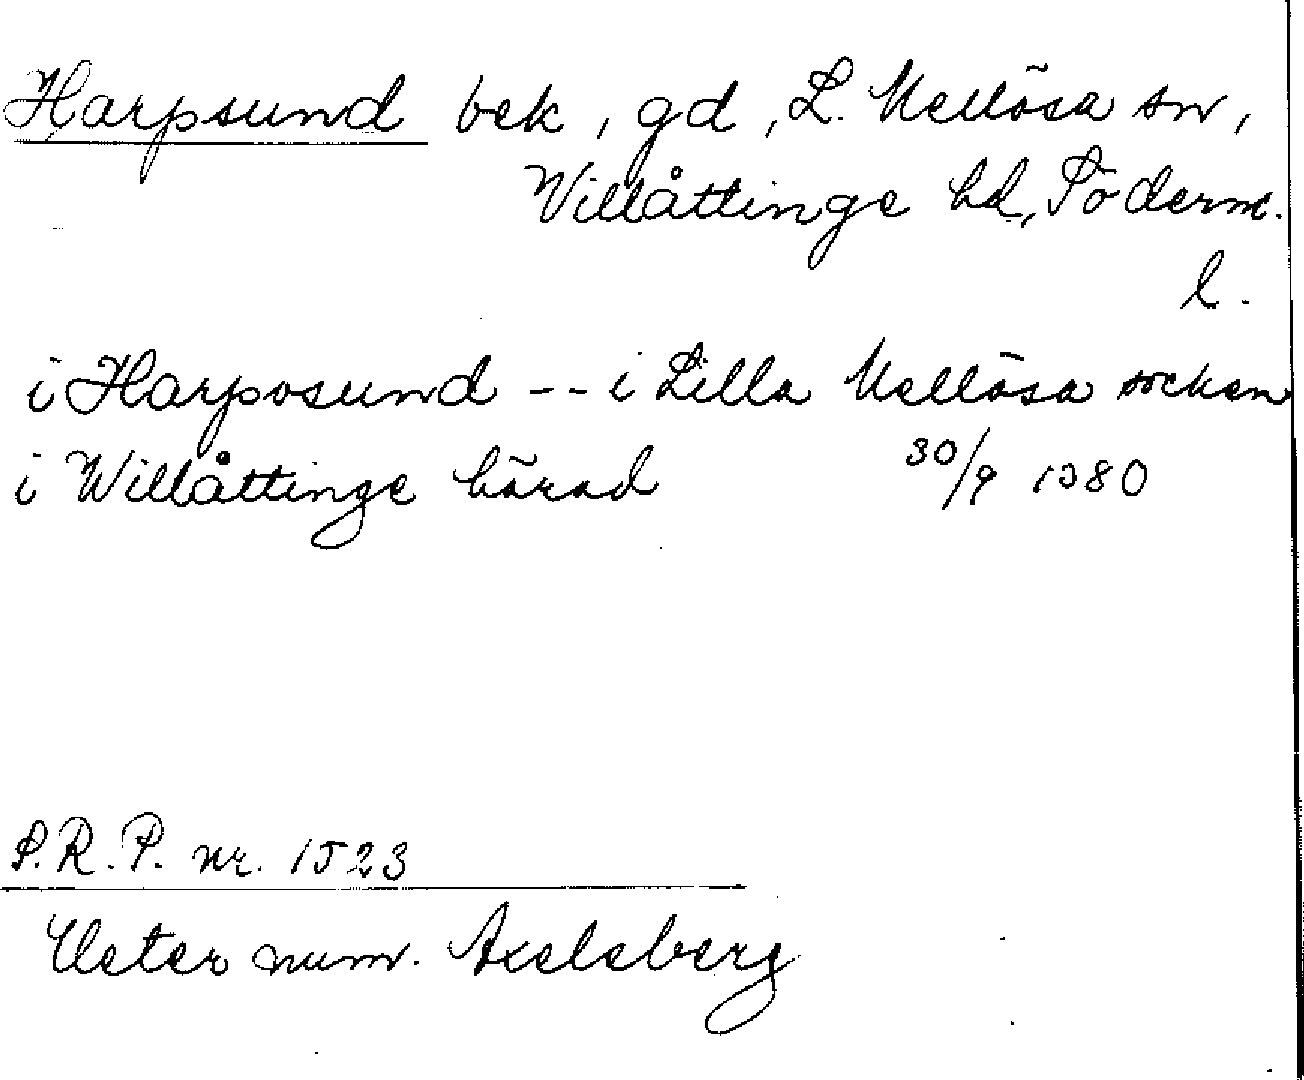 Harpsund bek, gd, L. Mellösa sn,
Villåttinge hd, Söderm.
l.
i Harposund -- i Lilla Mellösa socken
i Willåttinge härad 30/9 1380
S.R.P. nr. 1523
Utser num. Axelsberg